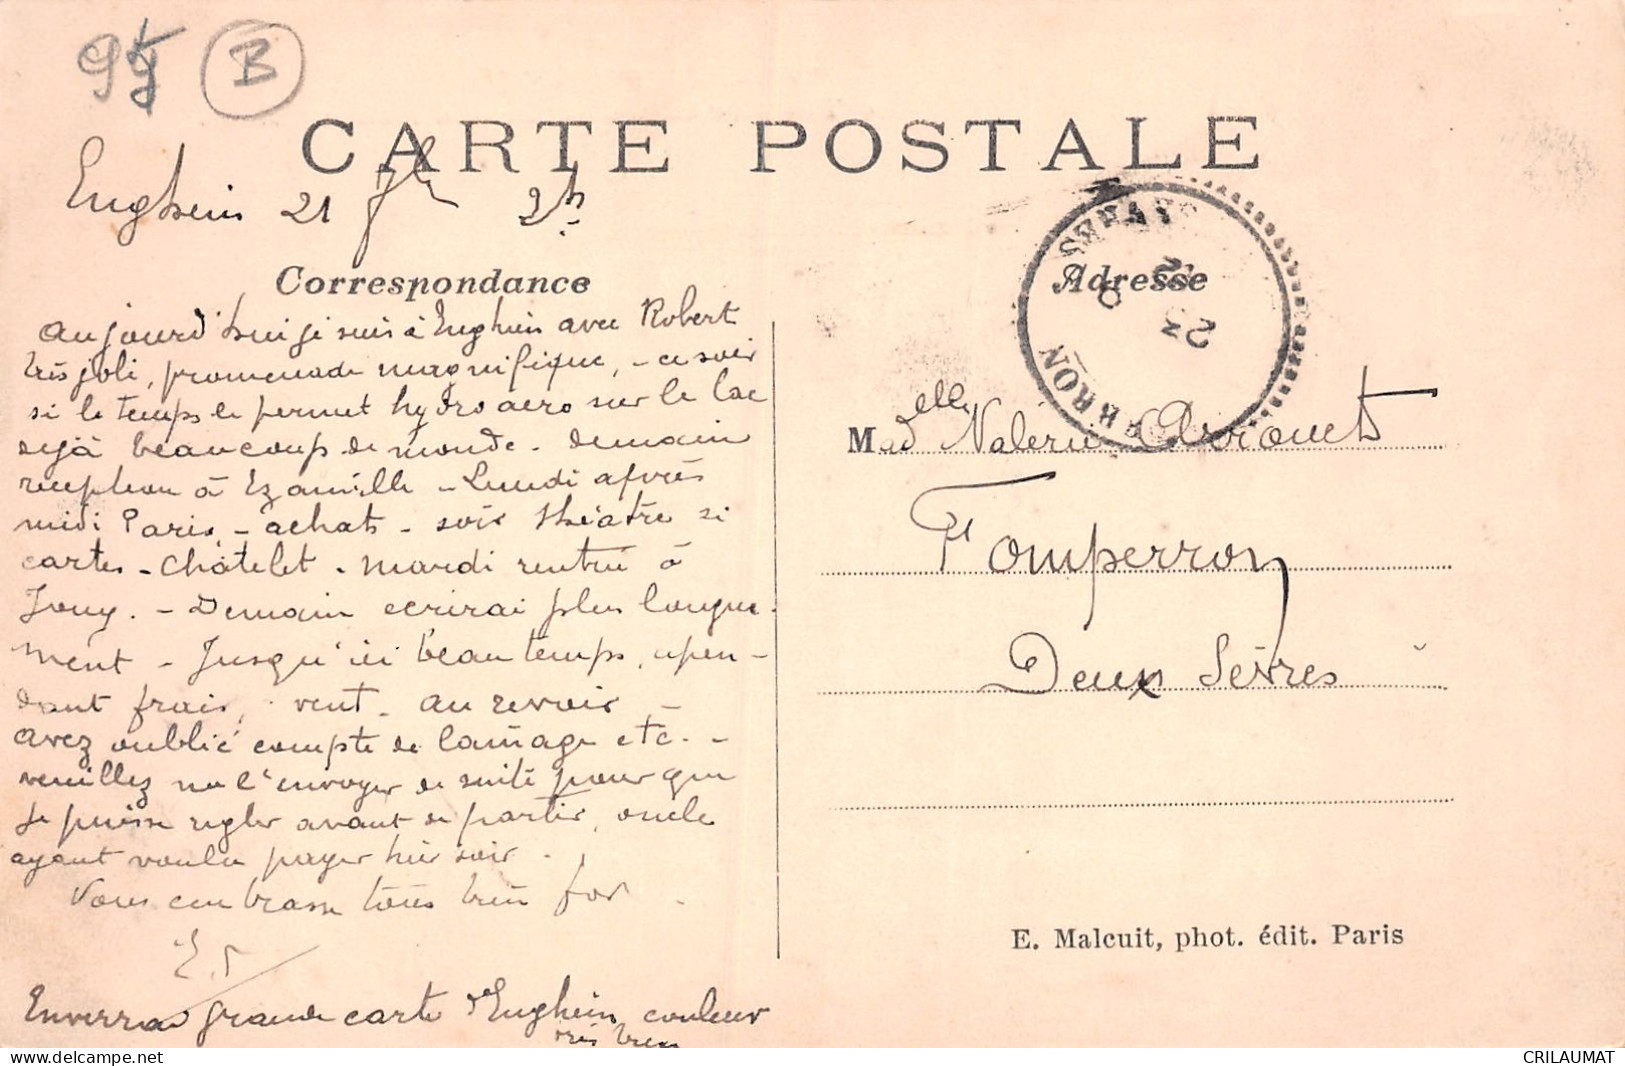 95 B
CARTE POSTALE
Enghein 21 2h
Correspondance
Adresse
FOMPERRON
23
aujourd'hui je suis à Enghein avec Robert
très joli, promenade magnifique, - ce soir
si le temps le permet hydro aero sur le lac
dejà beaucoup de monde. demain
reception à Ezanville - Lundi après
midi Paris, - achats - soir théâtre si
cartes - Châtelet - mardi rentrée à
Jouy. - Demain ecrirai plus longue-
ment - Jusqu'ici beau temps, cepen-
dant frais, vent. au revoir -
avez oublié compte de lainage etc. -
veuillez me l'envoyer de suite pour que
je puisse regler avant de partir, oncle
ayant voulu payer hier soir.
Vous embrasse tous bien fort.
E.
Enverrai grande carte d'Enghein couleur
très bien
Madelle Valerie
Fomperron
Deux Sèvres
E. Malcuit, phot. édit. Paris
CRILAUMAT
www.delcampe.net